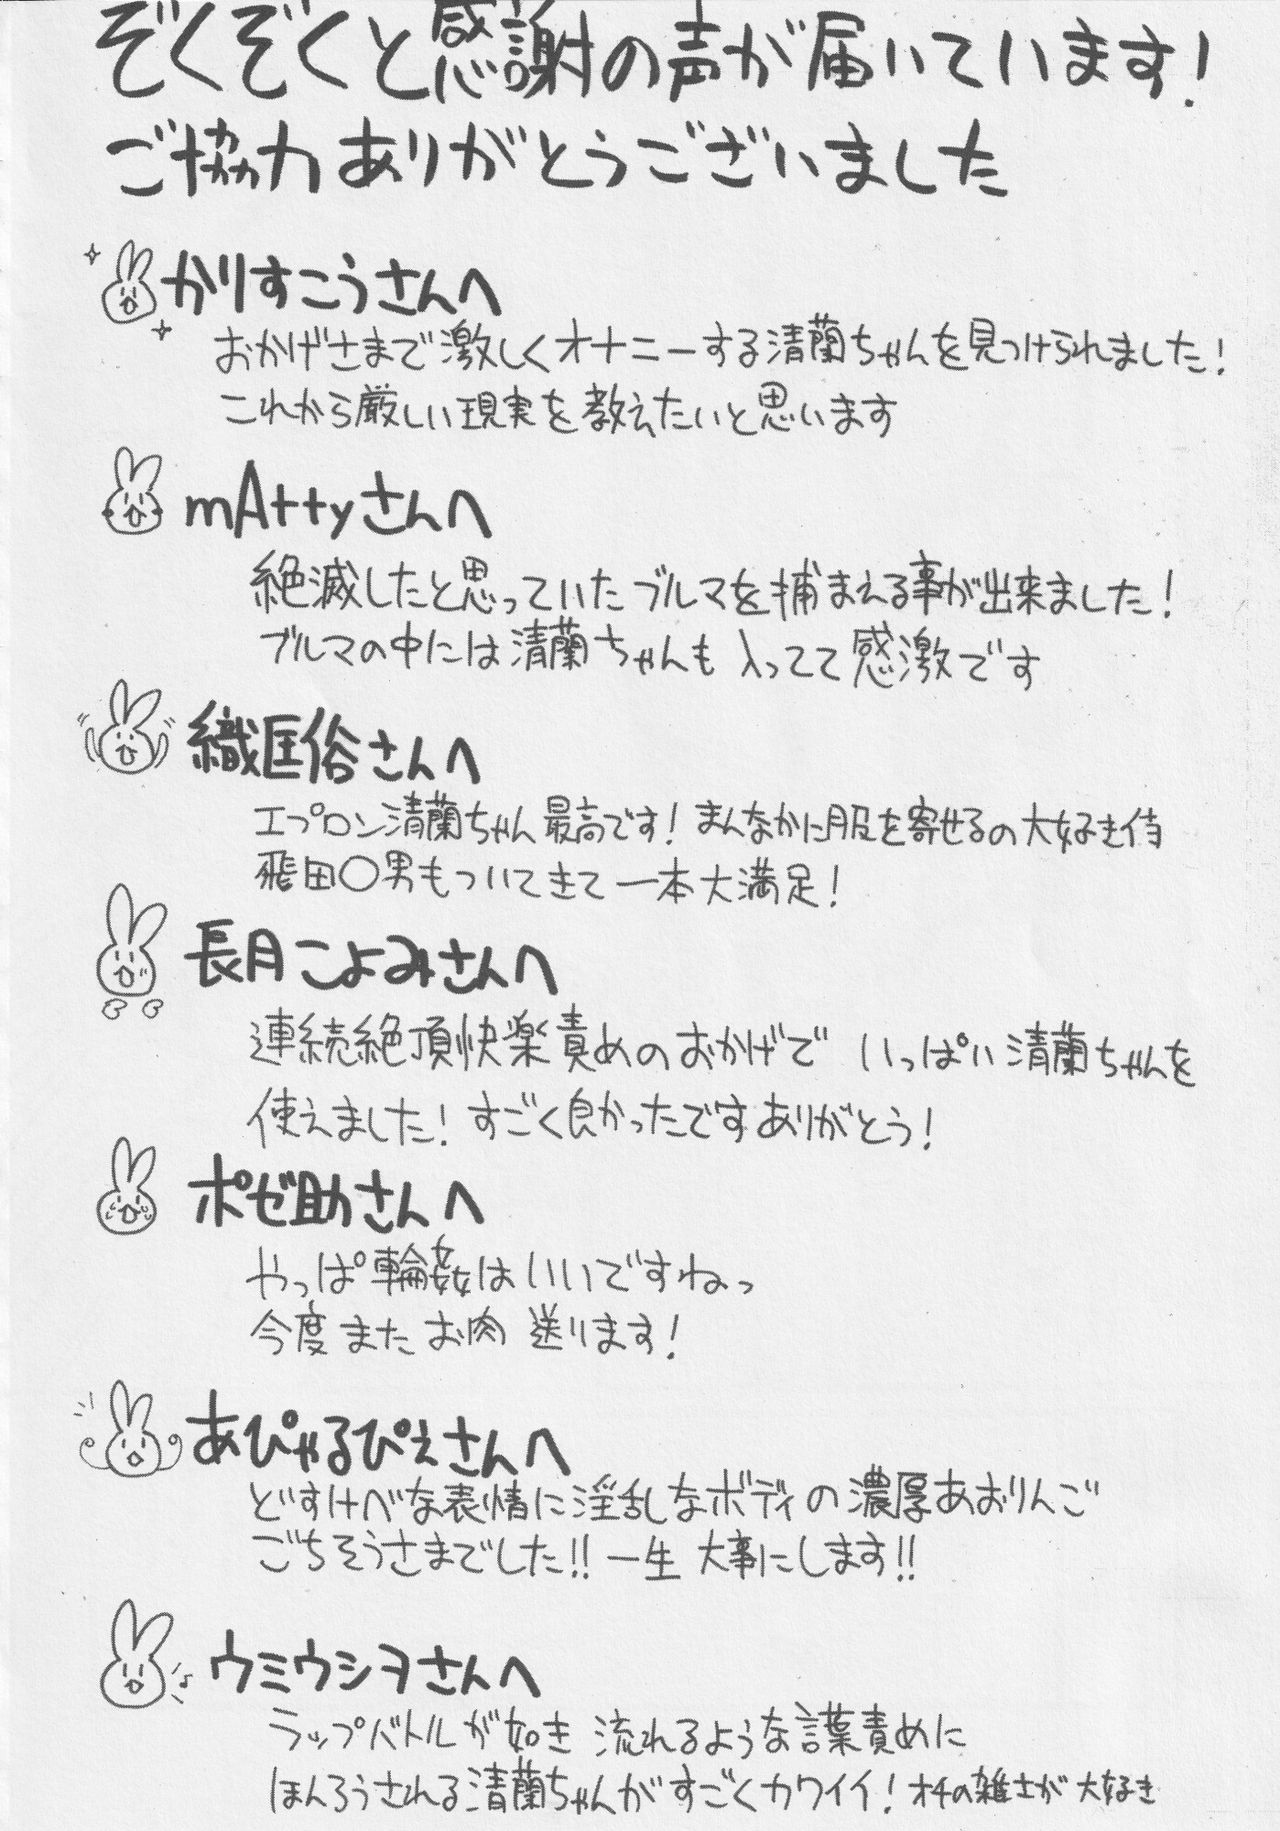 ぞくぞくと感謝の声が届いています!
ご協力ありがとうございました
かりすこうさんへ
おかげさまで激しくオナニーする清蘭ちゃんを見つけられました!
これから厳しい現実を教えたいと思います
mAttyさんへ
絶滅したと思っていたブルマを捕まえる事が出来ました!
ブルマの中には清蘭ちゃんも入ってて感激です
織匡俗さんへ
エプロン清蘭ちゃん最高です!まんなかに服を寄せるの大好き侍
飛田〇男もついてきて一本大満足!
長月こよみさんへ
連続絶頂快楽責めのおかげで いっぱい清蘭ちゃんを
使えました!すごく良かったですありがとう!
ポゼ助さんへ
やっぱ輪姦はいいですねっ
今度またお肉送ります!
あぴゃるぴぇさんへ
どすけべな表情に淫乱なボディの濃厚あおりんご
ごちそうさまでした!!一生大事にします!!
ウミウシヲさんへ
ラップバトルが如き 流れるような言葉責めに
ほんろうされる清蘭ちゃんがすごくカワイイ!オチの雑さが大好き